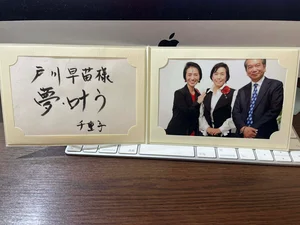 戸川早苗様
夢・叶う
千重子